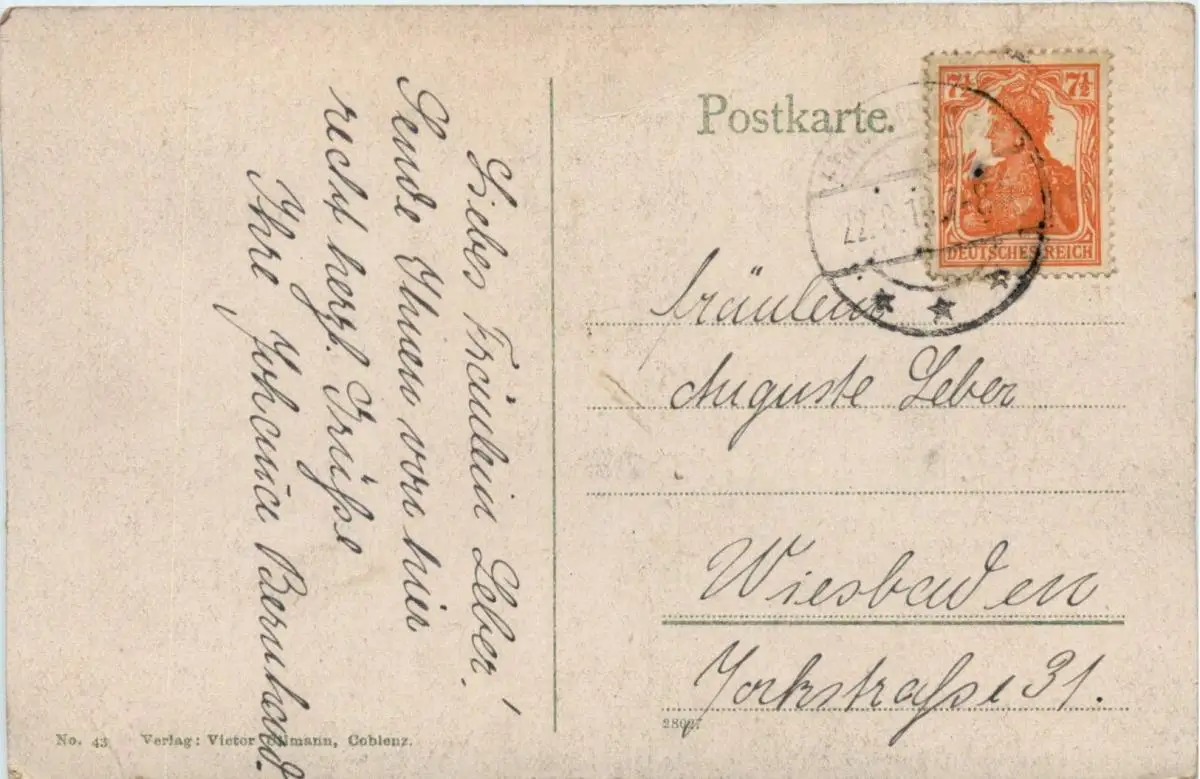 Liebes Fräulein Leber!
Sende Ihnen von hier
recht herzl. Grüsse
Ihre Johanna Bernhard.
Postkarte.
7½ 7½
DEUTSCHES REICH
Fräulein
Auguste Leber
Wiesbaden
Yorkstraße 31.
No. 43 Verlag: Victor Coblenz.